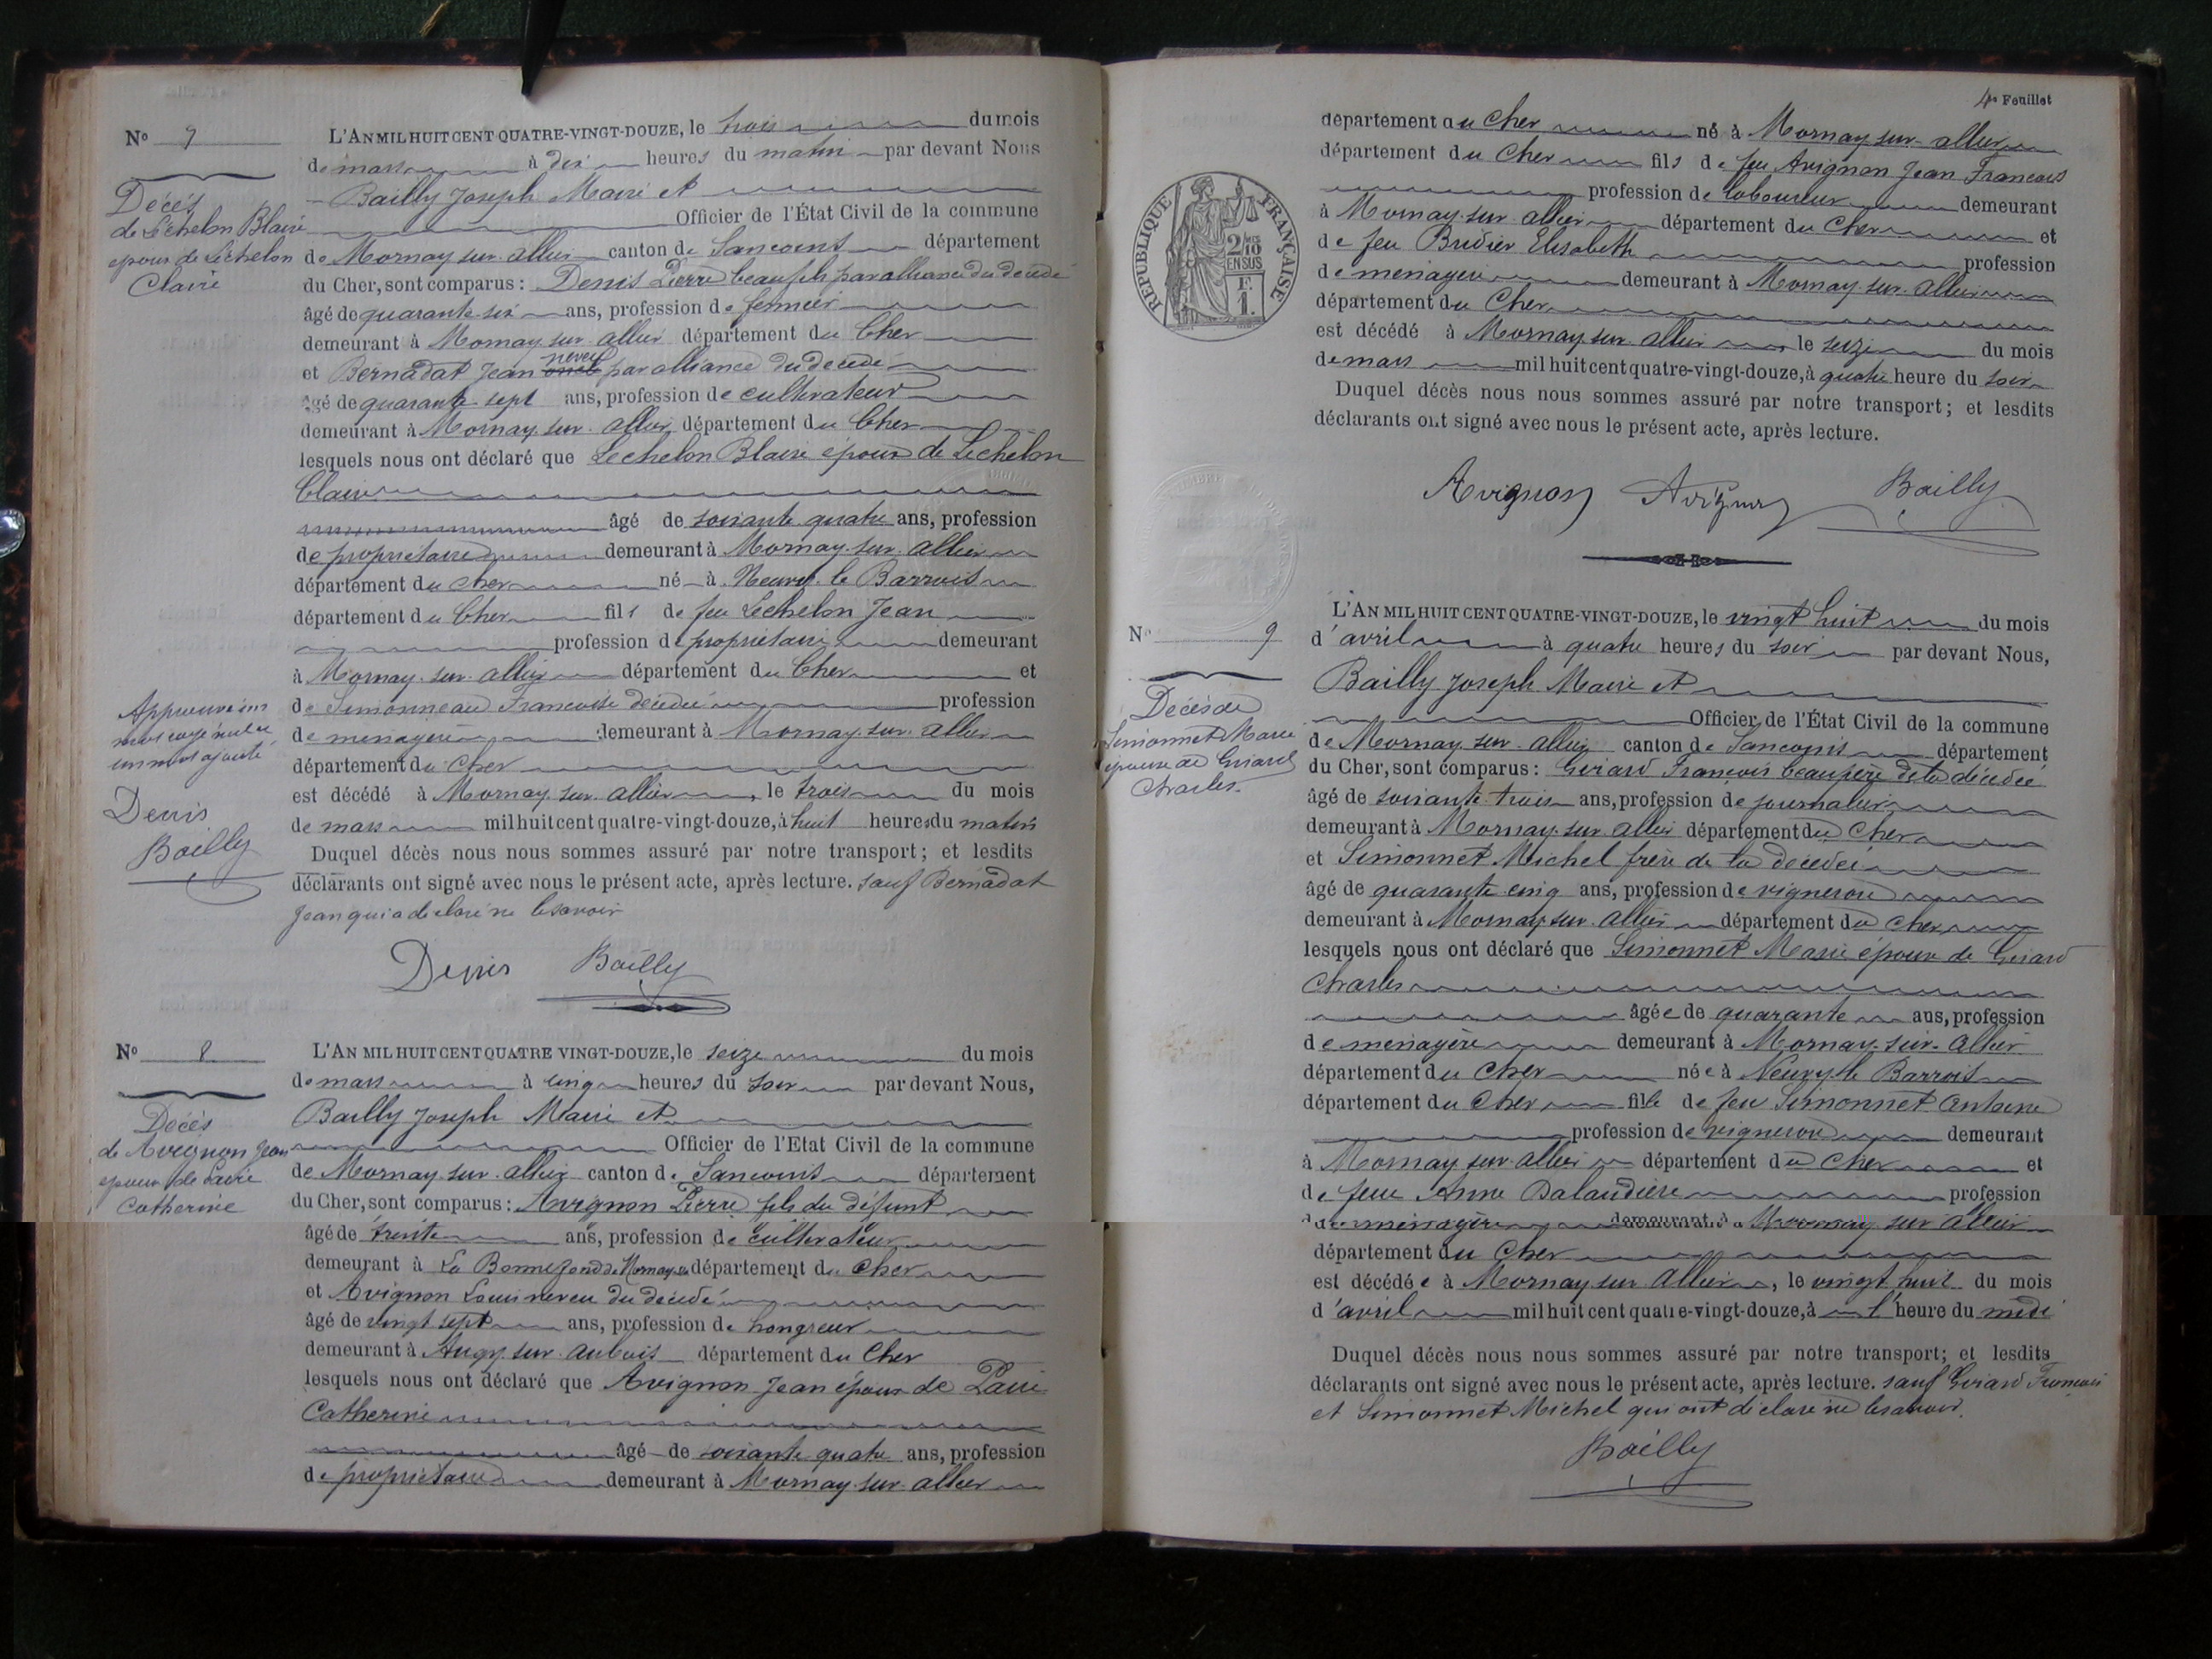 No 7
Décès
de Lechelon Blaise
époux de Lechelon
Claire
L'AN MIL HUIT CENT QUATRE-VINGT-DOUZE, le trois du mois
de mars à dix heures du matin par devant Nous
Bailly Joseph Maire et
Officier de l'État Civil de la commune
de Mornay sur allier canton de Sancoins département
du Cher, sont comparus : Denis Pierre beaufils par alliance du décédé
âgé de quarante six ans, profession de fermier
demeurant à Mornay sur allier département du Cher
et Bernadat Jean oncle neveu par alliance du decedé
âgé de quarante sept ans, profession de cultivateur
demeurant à Mornay sur allier département du Cher
lesquels nous ont déclaré que Lechelon Blaise époux de Lechelon
Claire
âgé de soixante quatre ans, profession
de propriétaire demeurant à Mornay sur allier
département du Cher né à Neuvy le Barrois
département du Cher fils de feu Lechelon Jean
profession de propriétaire demeurant
à Mornay sur allier département du Cher et
de Simonneau Francoise décédée profession
de menagère demeurant à Mornay sur allier
département du Cher
est décédé à Mornay sur allier, le trois du mois
de mars mil huit cent quatre-vingt-douze, à huit heures du matin
Duquel décès nous nous sommes assuré par notre transport ; et lesdits
déclarants ont signé avec nous le présent acte, après lecture. sauf Bernadat
Jean qui a déclaré ne le savoir
Approuvé un
mot rayé nul et
un mot ajouté
Denis
Bailly
Denis Bailly
No 8
Décès
de Avignon Jean
époux de
Catherine
L'AN MIL HUIT CENT QUATRE VINGT-DOUZE, le seize du mois
de mars à cinq heures du soir par devant Nous,
Bailly Joseph Maire et
Officier de l'Etat Civil de la commune
de Mornay sur allier canton de Sancoins département
du Cher, sont comparus : Avignon Pierre fils du défunt
âgé de trente ans, profession de cultivateur
demeurant à La de Mornay département du Cher
et Avignon Louis neveu du decedé
âgé de vingt sept ans, profession de hongreur
demeurant à Augy sur aubois département du Cher
lesquels nous ont déclaré que Avignon Jean époux de
Catherine
âgé de soixante quatre ans, profession
de propriétaire demeurant à Mornay sur allier
4e Feuillet
département du Cher né à Mornay sur allier
département du Cher fils de feu Avignon Jean Francois
profession de laboureur demeurant
à Mornay sur allier département du Cher et
de feu Bridier Elisabeth profession
de menagère demeurant à Mornay sur allier
département du Cher
est décédé à Mornay sur allier, le seize du mois
de mars mil huit cent quatre-vingt-douze, à quatre heure du soir
Duquel décès nous nous sommes assuré par notre transport ; et lesdits
déclarants ont signé avec nous le présent acte, après lecture.
REPUBLIQUE FRANÇAISE
2/10 EN SUS
F. 1.
Avignon Avignon Bailly
No 9
Décès de
Simonnet Marie
épouse de Girard
Charles.
L'AN MIL HUIT CENT QUATRE-VINGT-DOUZE, le vingt huit du mois
d'avril à quatre heures du soir par devant Nous,
Bailly Joseph Maire et
Officier de l'État Civil de la commune
de Mornay sur allier canton de Sancoins département
du Cher, sont comparus : Girard François beaupère de la décédée
âgé de soixante trois ans, profession de journalier
demeurant à Mornay sur allier département du Cher
et Simonnet Michel frère de la decedée
âgé de quarante cinq ans, profession de vigneron
demeurant à Mornay sur allier département du Cher
lesquels nous ont déclaré que Simonnet Marie épouse de Girard
Charles
âgée de quarante ans, profession
de menagère demeurant à Mornay sur Allier
département du Cher née à Neuvy le Barrois
département du Cher fille de feu Simonnet Antoine
profession de vigneron demeurant
à Mornay sur allier département du Cher et
de feue Anne Dalaudière profession
de menagère demeurant à Mornay sur allier
département du Cher
est décédée à Mornay sur Allier, le vingt huit du mois
d'avril mil huit cent quatre-vingt-douze, à l'heure du midi
Duquel décès nous nous sommes assuré par notre transport; et lesdits
déclarants ont signé avec nous le présent acte, après lecture. sauf Girard François
et Simonnet Michel qui ont déclaré ne le savoir.
Bailly